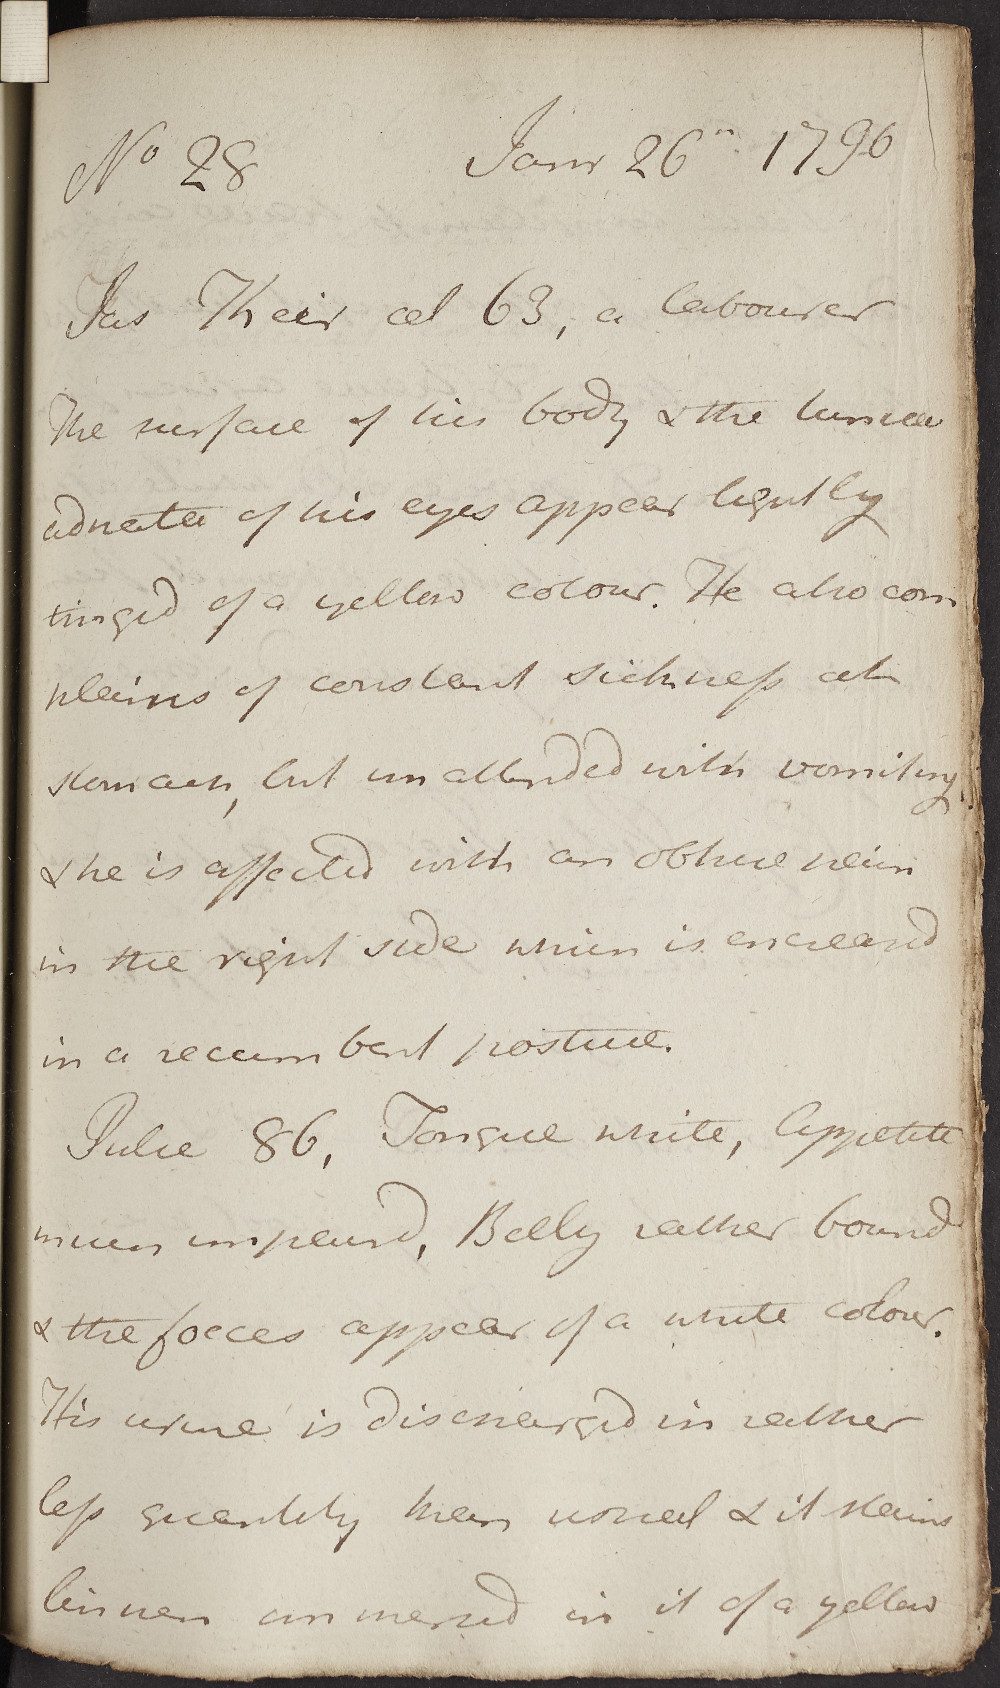 No 28 Janr 26th 1796
Jas Their aet 63, a labourer
The surface of his body & the tunica
adnata of his eyes appear lightly
tinged of a yellow colour. He also com
plains of constant sickness at
stomach, but unattended with vomiting,
& he is affected with an obtuse pain
in the right side which is encreased
in a recumbent posture.
Pulse 86, Tongue white, Appetite
much impaired, Belly rather bound
& the foeces appear of a white colour.
His urine is discharged in rather
less quantity than usual & it stains
linnen immersed in it of a yellow